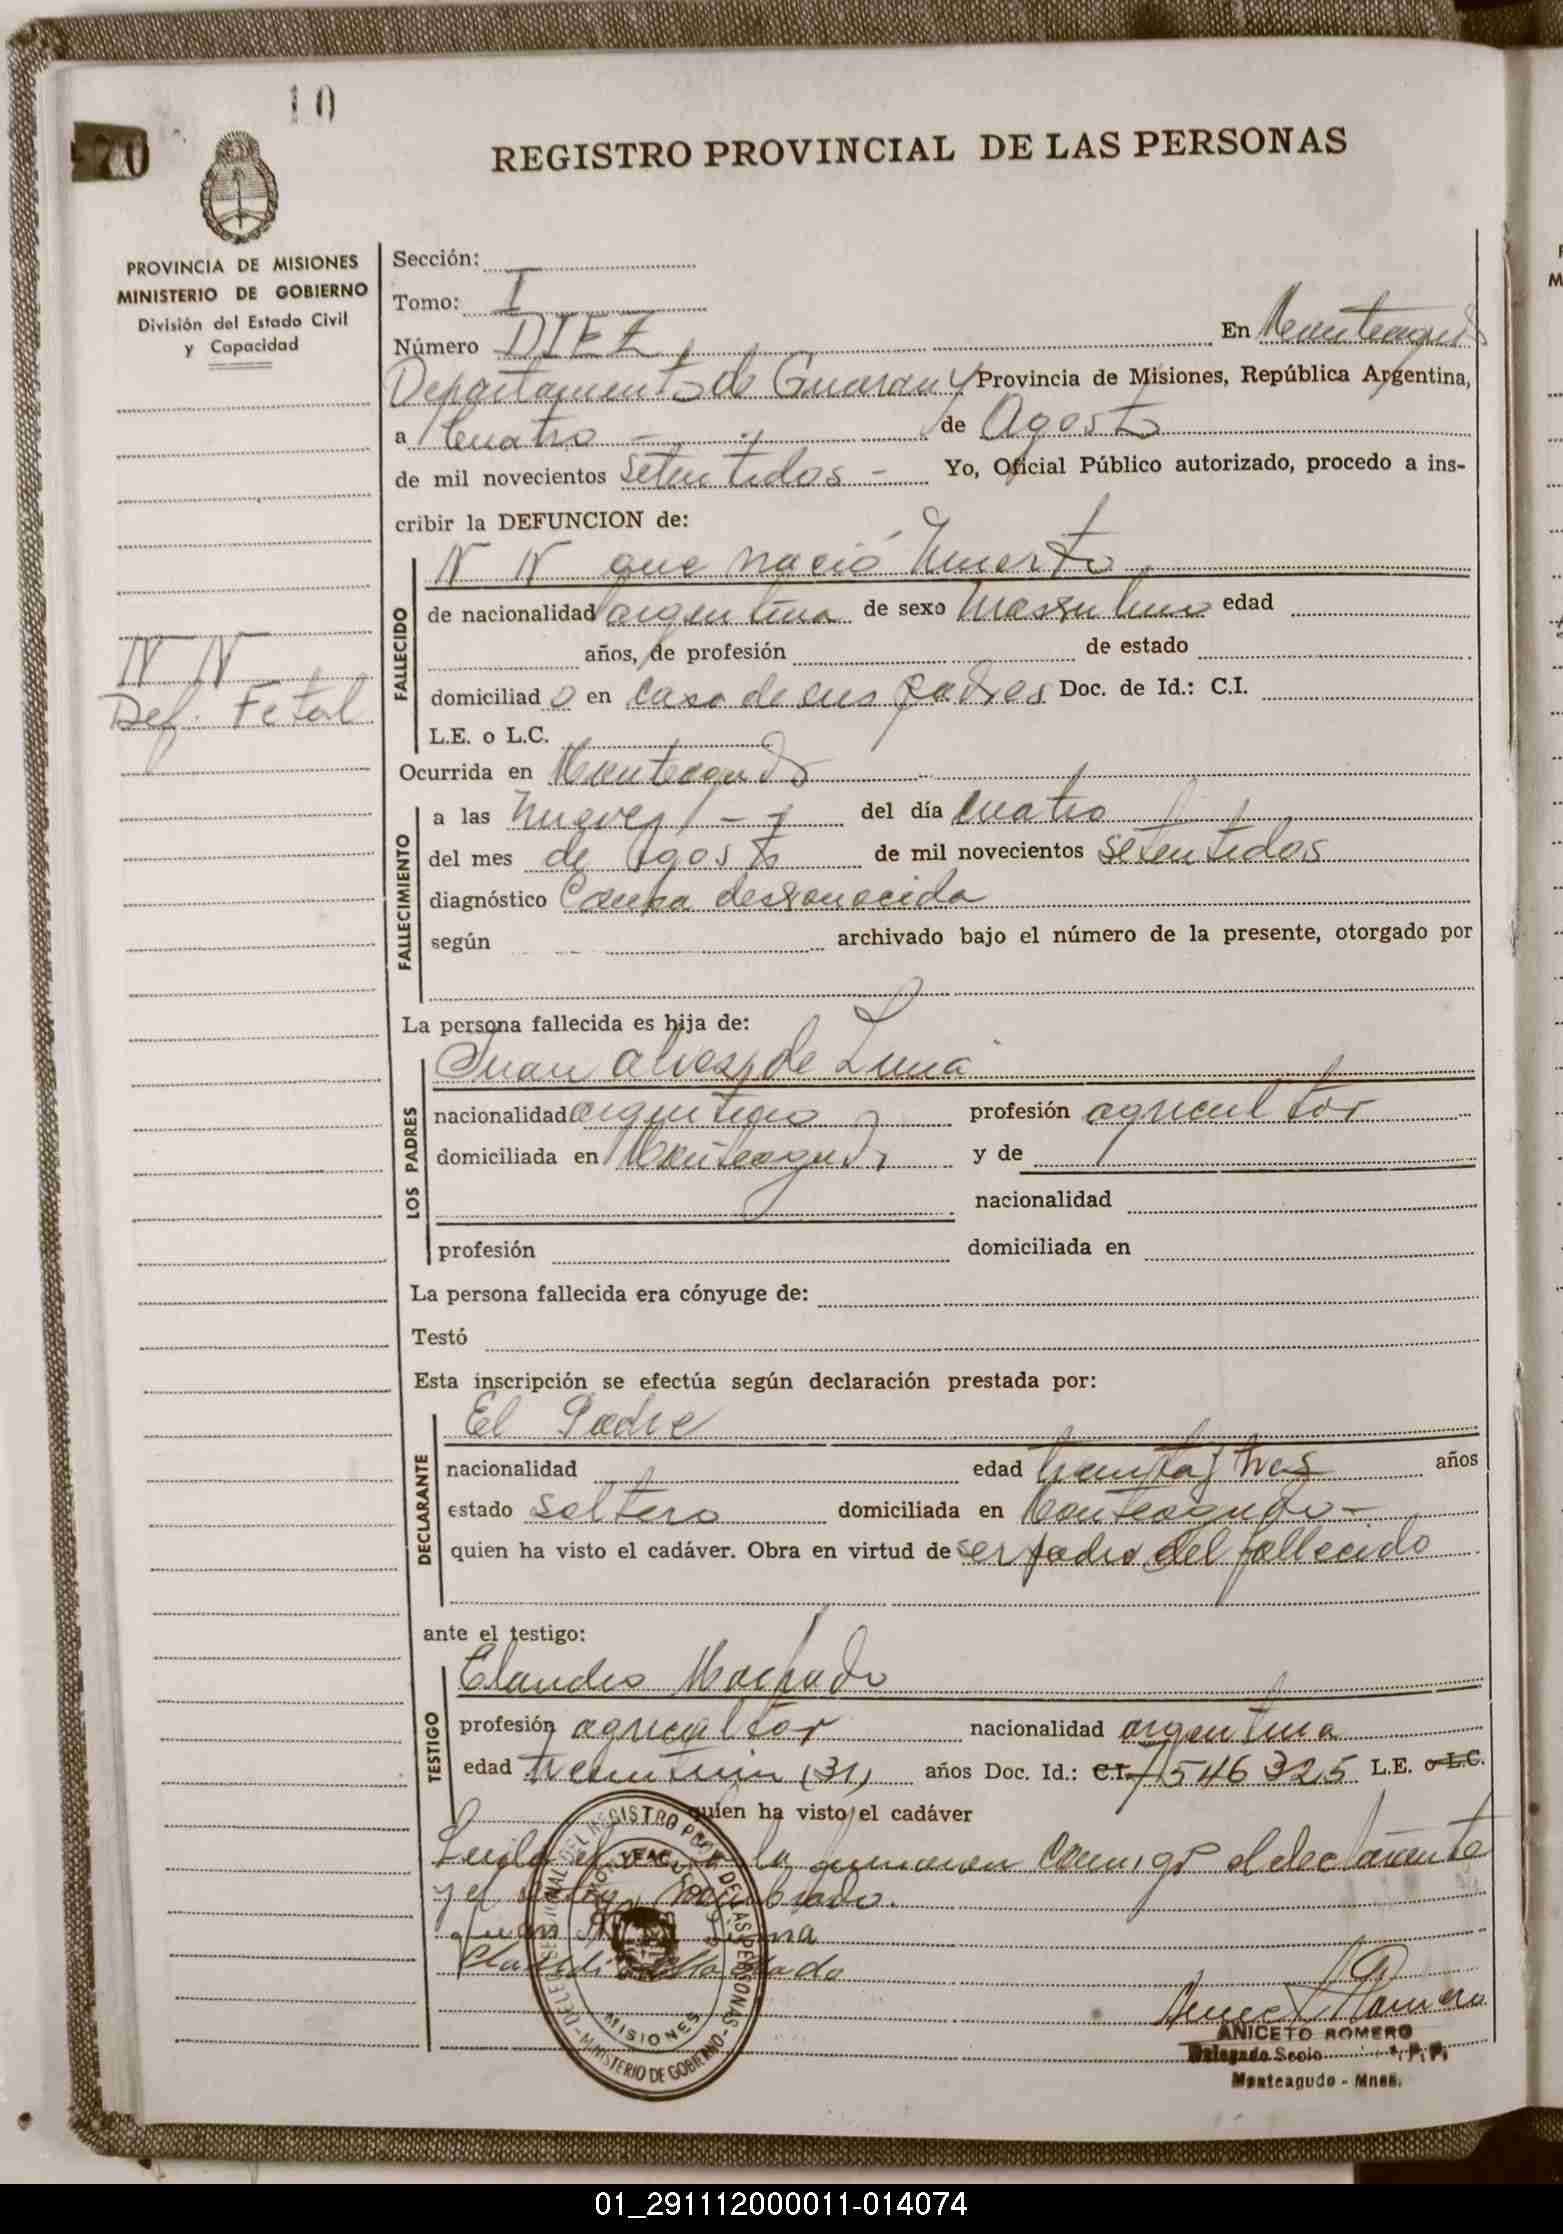 10
70
REGISTRO PROVINCIAL DE LAS PERSONAS
PROVINCIA DE MISIONES
MINISTERIO DE GOBIERNO
División del Estado Civil
y Capacidad
N N
Def. Fetal
Sección:
Tomo: I
Número DIEZ En Monteagudo
Departamento de Guarany Provincia de Misiones, República Argentina,
a Cuatro - de Agosto
de mil novecientos setentidos - Yo, Oficial Público autorizado, procedo a ins-
cribir la DEFUNCION de:
FALLECIDO
N N que nació muerto
de nacionalidad argentina de sexo Masculino edad
años, de profesión de estado
domiciliad o en casa de sus padres Doc. de Id.: C.I.
L.E. o L.C.
Ocurrida en Monteagudo
FALLECIMIENTO
a las nueve - del día cuatro
del mes de Agosto de mil novecientos setentidos
diagnóstico Causa desconocida
según archivado bajo el número de la presente, otorgado por
La persona fallecida es hija de:
LOS PADRES
Juan alves de Lima
nacionalidad argentino profesión agricultor
domiciliada en Monteagudo y de
nacionalidad
profesión domiciliada en
La persona fallecida era cónyuge de:
Testó
Esta inscripción se efectúa según declaración prestada por:
DECLARANTE
El Padre
nacionalidad edad treinta y tres años
estado soltero domiciliada en Monteagudo -
quien ha visto el cadáver. Obra en virtud de ser padre del fallecido
ante el testigo:
TESTIGO
Claudio Machado
profesión agricultor nacionalidad argentina
edad treintiun (31) años Doc. Id.: C.I. 7546325 L.E. o L.C.
quien ha visto el cadáver
Leida el la firman conmigo el declarante
y el testigo nombrado.
Juan A Lima
Claudio Machado
DEL REGISTRO PROV. DE LAS PERSONAS - MINISTERIO DE GOBIERNO -
MONTEAGUDO
MISIONES
Aniceto Romero
ANICETO ROMERO
Delegado Secio R.P.P.
Monteagudo - Mnes.
01_291112000011-014074